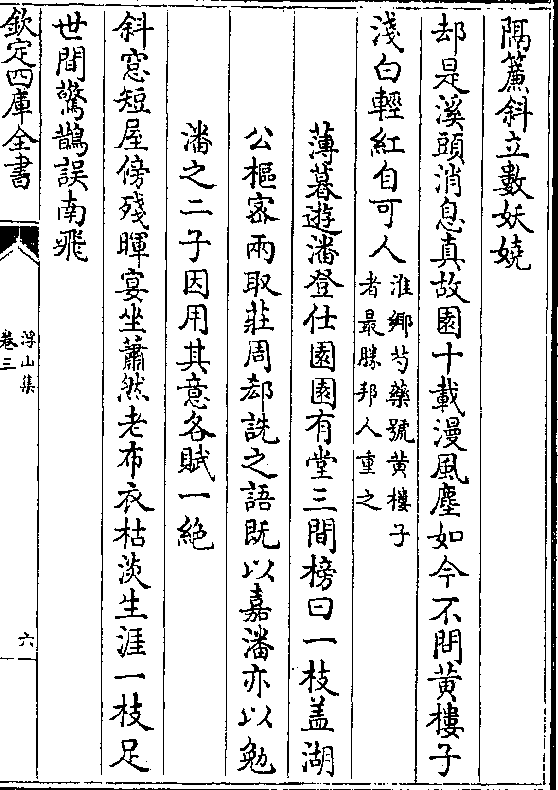 隔簾斜立數妖嬈
却是溪頭消息真故園十載漫風塵如今不問黄樓子
淺白輕紅自可人淮鄉芍藥號黄樓子
者最勝邦人重之
薄暮遊潘登仕園園有堂三間榜曰一枝盖湖
公樞密兩取莊周郄詵之語既以嘉潘亦以勉
潘之二子因用其意各賦一絶
斜窓短屋傍殘暉宴坐蕭然老布衣枯淡生涯一枝足
世間驚鵲誤南飛
欽定四庫全書
浮山集
卷三
六